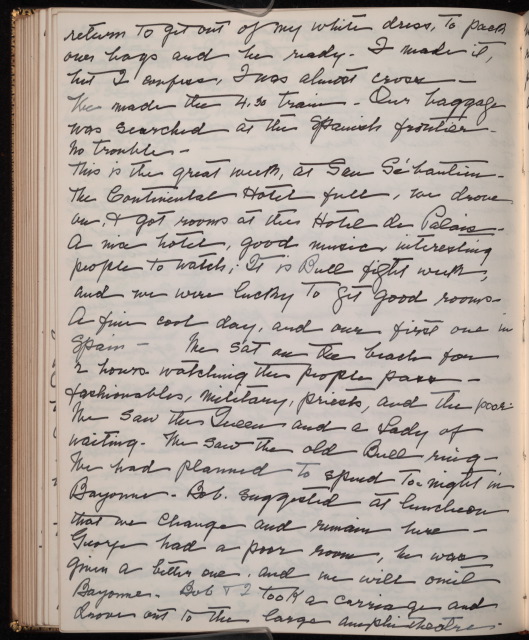 return to get out of my white dress, to pack
our bags and be ready. I made it,
but I confess, I was almost cross —
We made the 4.30 train. Our baggage
was searched at the Spanish frontier.
no trouble —
This is the great week, at San Sébastian.
The Continental Hotel full, we drove
on, & got rooms at the Hotel du Palais.
A nice hotel, good music, interesting
people to watch. It is Bull fight week,
and we were lucky to get good rooms.
A fine cool day, and our first one in
Spain — We sat on the beach for
2 hours watching the people pass —
fashionables, military, priests, and the poor.
We saw the Queen and a Lady of
waiting. We saw the old Bull ring —
We had planned to spend To-night in
Bayonne. Bob. suggested at luncheon
that we change and remain here —
George had a poor room, he was
given a better one. and we will omit
Bayonne. Bob & I took a carriage and
drove out to the large amphitheatre.